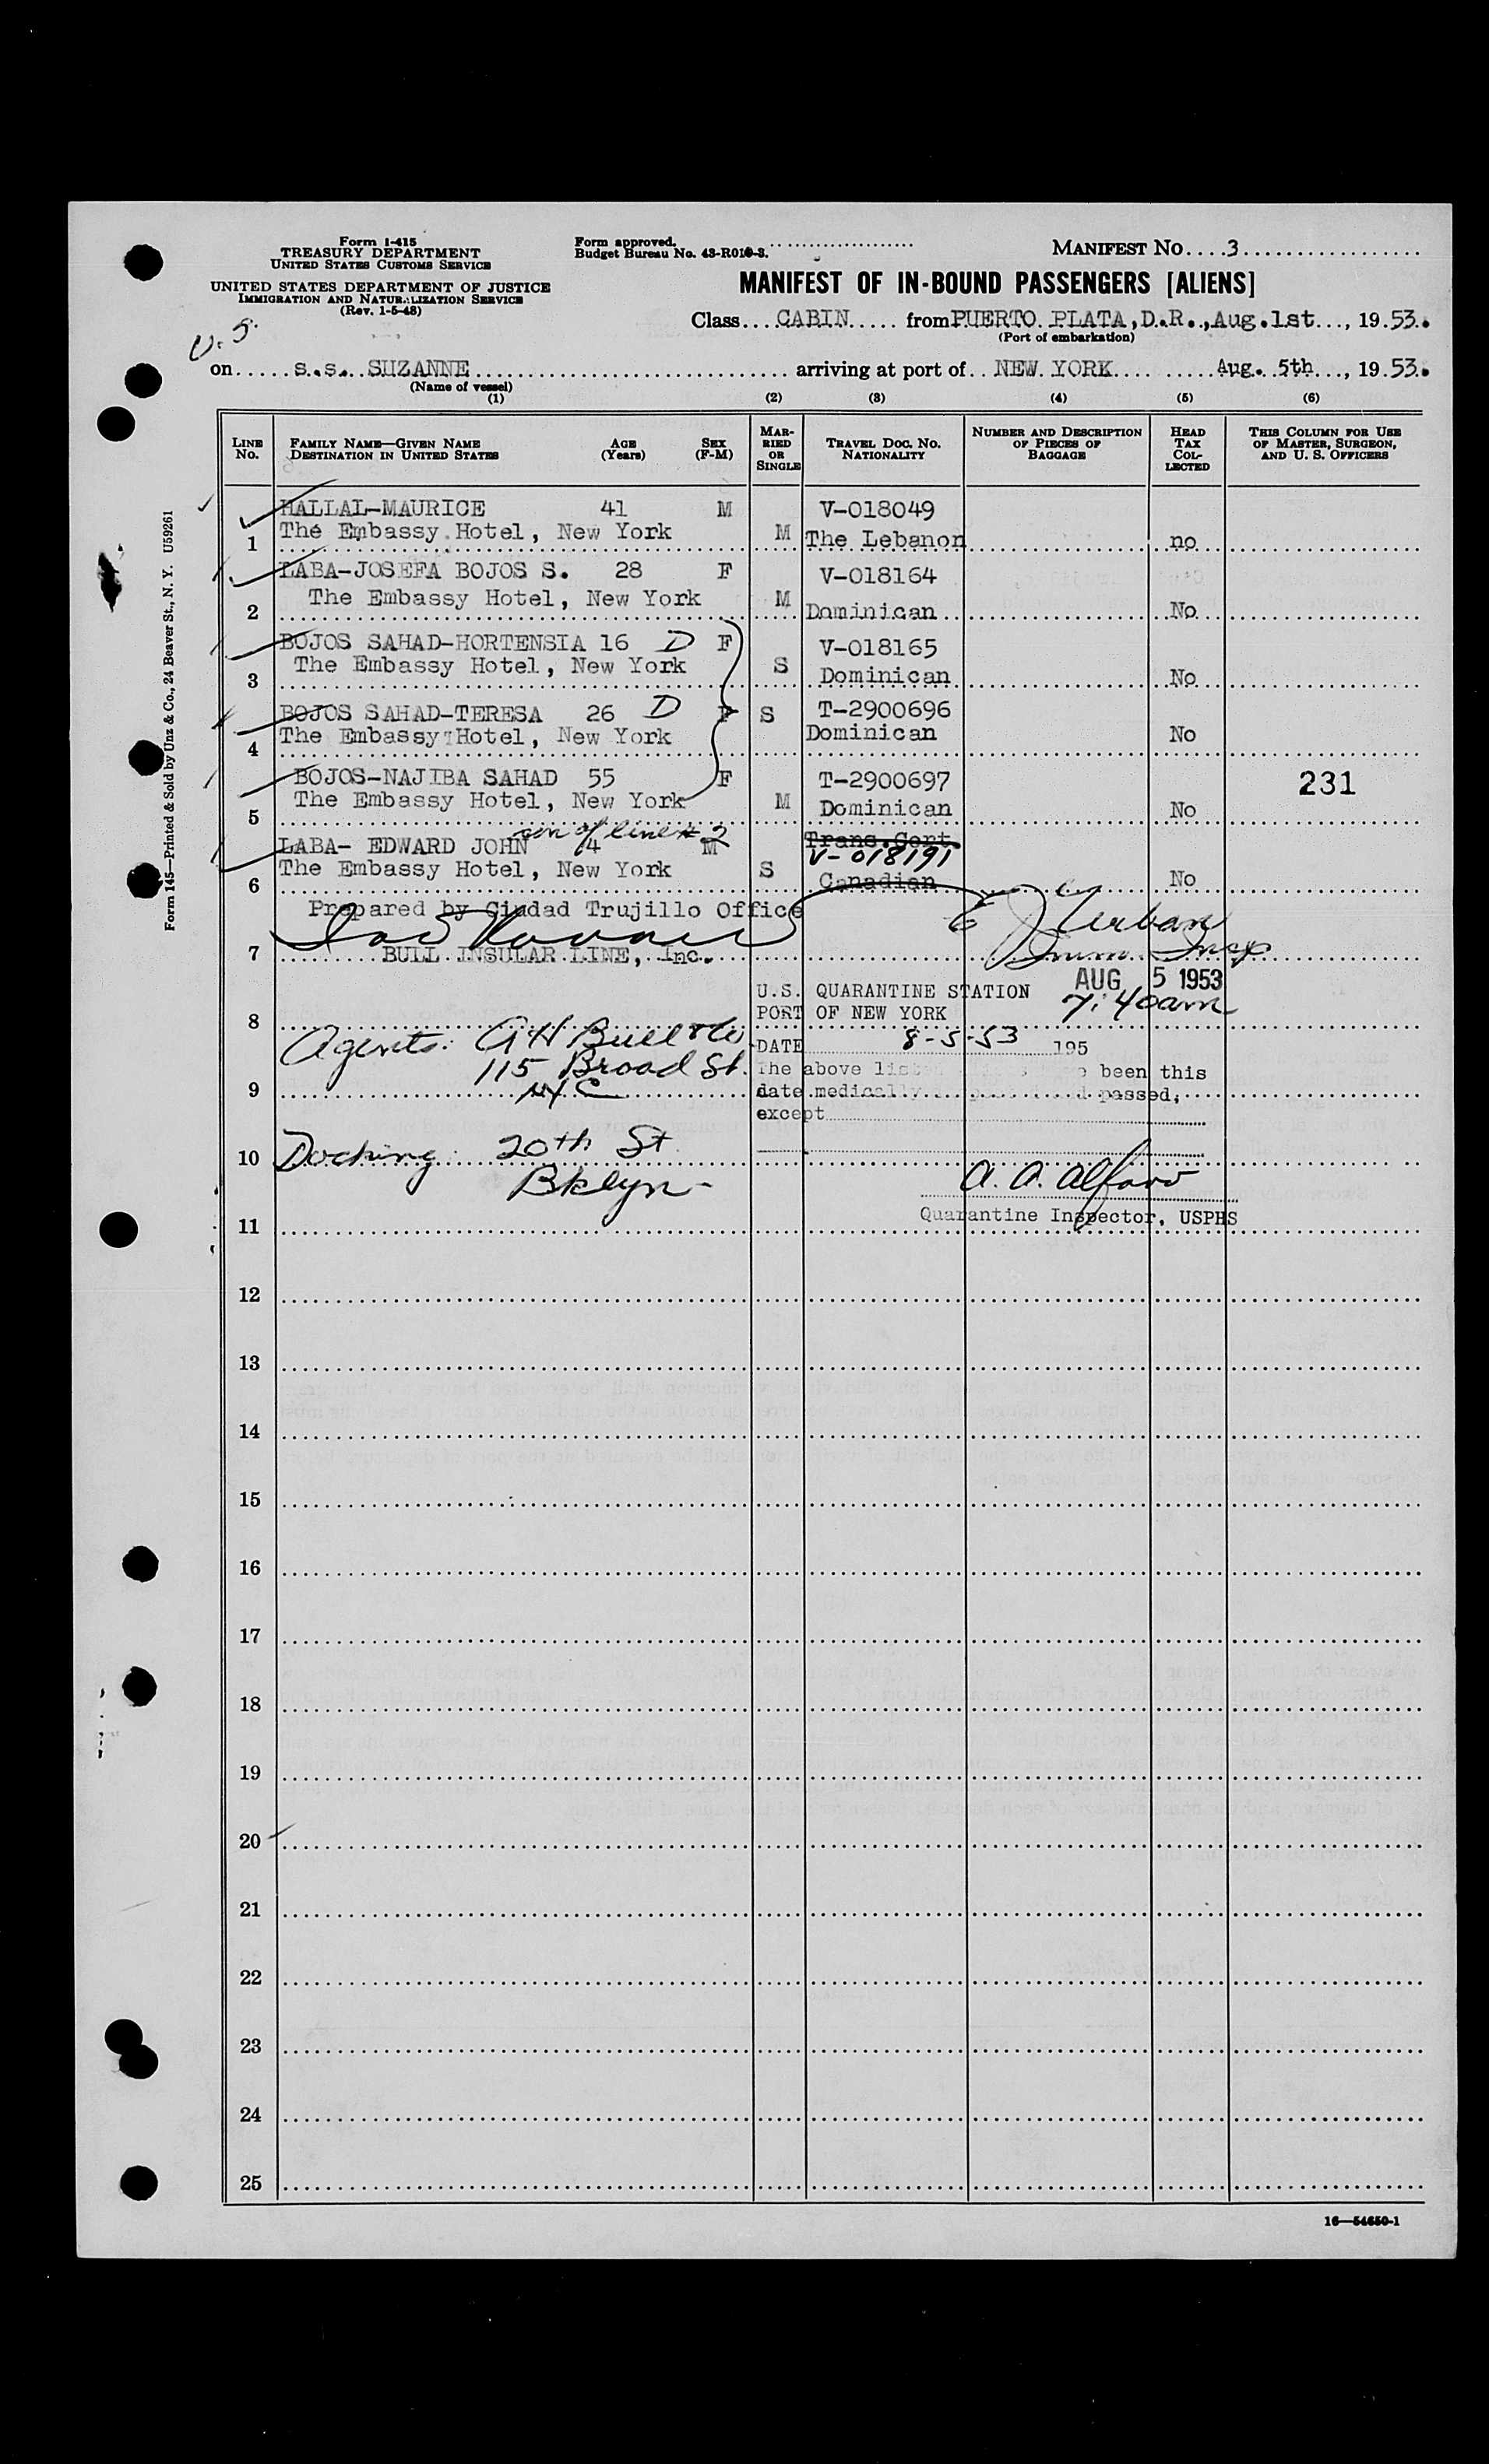 Form I-415
TREASURY DEPARTMENT
UNITED STATES CUSTOMS SERVICE
UNITED STATES DEPARTMENT OF JUSTICE
IMMIGRATION AND NATURALIZATION SERVICE
(Rev. 1-5-48)
Form approved.
Budget Bureau No. 43-R010-3.
MANIFEST No....3
MANIFEST OF IN-BOUND PASSENGERS [ALIENS]
Class....CABIN..... from PUERTO PLATA, D.R., Aug. 1st..., 19 53.
(Port of embarkation)
U.S.
on......s.s. SUZANNE
arriving at port of.. NEW YORK.... Aug. 5th..., 19 53.
(Name of vessel)
(1) (2) (3) (4) (5) (6)
LINE No. FAMILY NAME—GIVEN NAME DESTINATION IN UNITED STATES AGE (Years) SEX (F-M) MARRIED OR SINGLE TRAVEL DOC. NO. NATIONALITY NUMBER AND DESCRIPTION OF PIECES OF BAGGAGE HEAD TAX COLLECTED THIS COLUMN FOR USE OF MASTER, SURGEON, AND U. S. OFFICERS
HALLAL-MAURICE 41 M V-018049
1 The Embassy Hotel, New York M The Lebanon no
LABA-JOSEFA BOJOS S. 28 F V-018164
2 The Embassy Hotel, New York M Dominican No
BOJOS SAHAD-HORTENSIA 16 D F V-018165
3 The Embassy Hotel, New York S Dominican No
BOJOS SAHAD-TERESA 26 D F S T-2900696
4 The Embassy Hotel, New York Dominican No
BOJOS-NAJIBA SAHAD 55 F T-2900697 231
5 The Embassy Hotel, New York M Dominican No
son of line # 2
LABA- EDWARD JOHN 4 M Trans.Cert. V-018191
6 The Embassy Hotel, New York S Canadian No
Prepared by Ciudad Trujillo Office
E J Urban
7 BULL INSULAR LINE, Inc. Imm. Insp
AUG 5 1953
7:40am
U.S. QUARANTINE STATION
8 PORT OF NEW YORK
DATE 8-5-53 195
Agents: A H Bull & Co
115 Broad St.
9 NYC
The above listed been this
date medically passed,
except
10 Docking: 20th St
Bklyn-
A. A. Alfaro
11 Quarantine Inspector, USPHS
12
13
14
15
16
17
18
19
20
21
22
23
24
25
16—54650-1
Form 145—Printed & Sold by Unz & Co., 24 Beaver St., N. Y. U59261